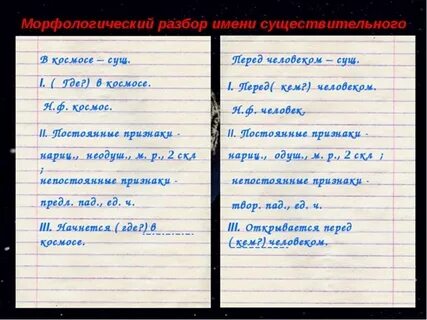 Морфологический разбор имени существительного
В космосе – сущ.
I. ( Где?) в космосе.
Н.ф. космос.
II. Постоянные признаки -
нариц., неодуш., м. р., 2 скл
;
непостоянные признаки -
предл. пад., ед. ч.
III. Начнется ( где?) в
космосе.
Перед человеком – сущ.
I. Перед( кем?) человеком.
Н.ф. человек.
II. Постоянные признаки -
нариц., одуш., м. р., 2 скл ;
непостоянные признаки -
твор. пад., ед. ч.
III. Открывается перед
( кем?) человеком.